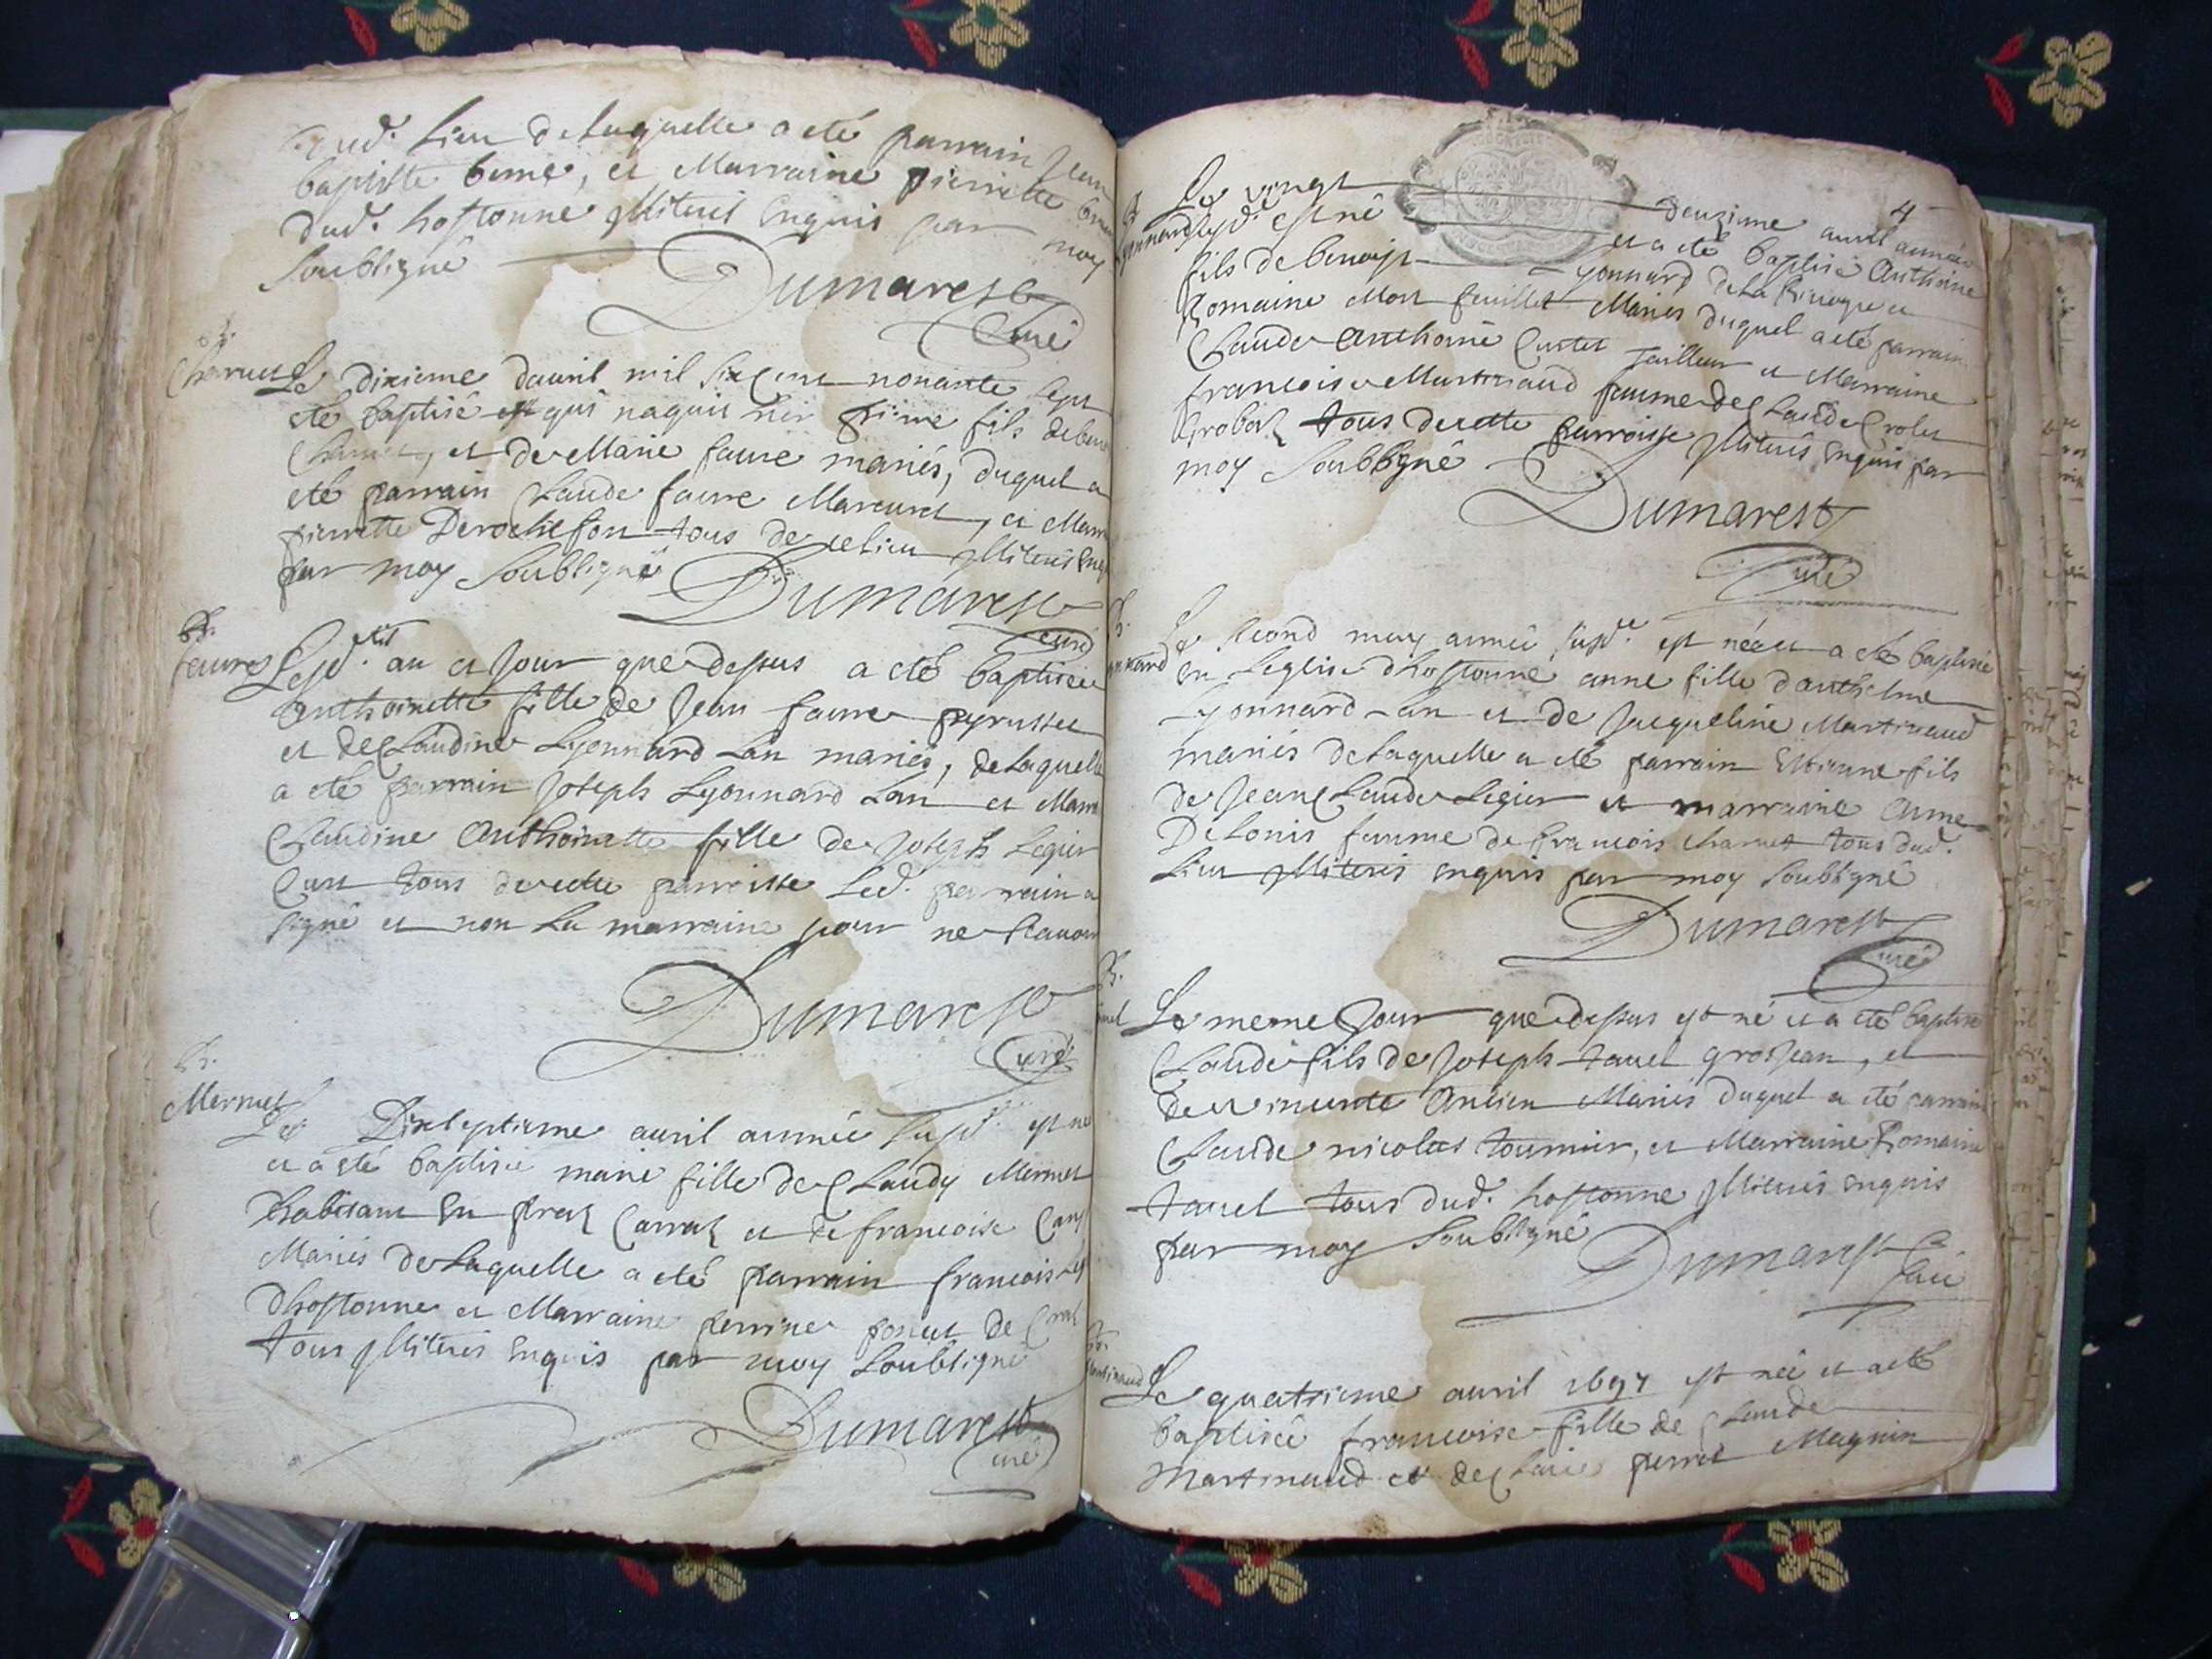 dud. Lieu de Laquelle a eté parrain Jean
baptiste beme, et Marraine pierrette
dud. hostonne illiterés Enquis par moy
Soubsigné
Dumarest
Curé
B.
Charvet
Le dixieme davril mil six cent nonante sept
eté baptisé qui naquit hier fils de
Charvet, et de Marie favre mariés, duquel a
eté parrain Claude favre Marcuret, et Marr
pierrette Derochefort tous de ce lieu illiterés Enq
par moy Soubsigné
Dumarest
Curé
B.
favre
Lesd. an et Jour que dessus a eté baptisée
Anthoinette fille de Jean favre peyrusset
et de Claudine Lyonnard Lan mariés, de Laquelle
a eté parrain Joseph Lyonnard Lan et Marra
Claudine Anthoinette fille de Joseph Legier
Curt tous de cette parroisse Led. parrain a
signé et non La marraine pour ne scavoir
Dumarest
Curé
B.
Mermet
Le Dixseptieme avril année susd. est né
et a eté baptisée marie fille de Claudy Mermet
habitant En Carraz et de francoise
Mariés de Laquelle a eté parrain francois
Dhostonne et Marraine perrine de
tous illiterés Enquis par moy Soubsigné
Dumarest
Curé
4
B
Lyonnard
Le vingt deuzieme avril année
susd. est né et a eté baptisé Anthoine
fils de benoist yonnard et
Romaine Mon feuillet Mariés duquel a eté parrain
Claude Anthoine Curtet Tailleur et Marraine
francoise Martinaud femme de Claude Crolet
Grobos tous de cette parroisse illiterés Enquis par
moy Soubsigné
Dumarest
Curé
B.
Le second may année susd. est née et a eté baptisée
En Leglise dhostonne anne fille danthelme
Lyonnard Lan et de Jacqueline Martinaud
mariés de Laquelle a eté parrain Estienne fils
de Jean Claude Legier et marraine Anne
Delonis femme de francois Charvet tous dud.
Lieu illiterés enquis par moy Soubsigné
Dumarest
Curé
B.
Le meme Jour que dessus est né et a eté baptisé
Claude fils de Joseph tavel grosjean, et
de vincente Ancien Mariés duquel a eté parrain
Claude nicolas tournier, et Marraine Romaine
tavel tous dud. hostonne illiterés enquis
par moy Soubsigné
Dumarest
Curé
B.
Martinaud
Le quatrieme avril 1697 est née et a eté
baptisée francoise fille de Claude
Martinaud et de Claire perret Magnin